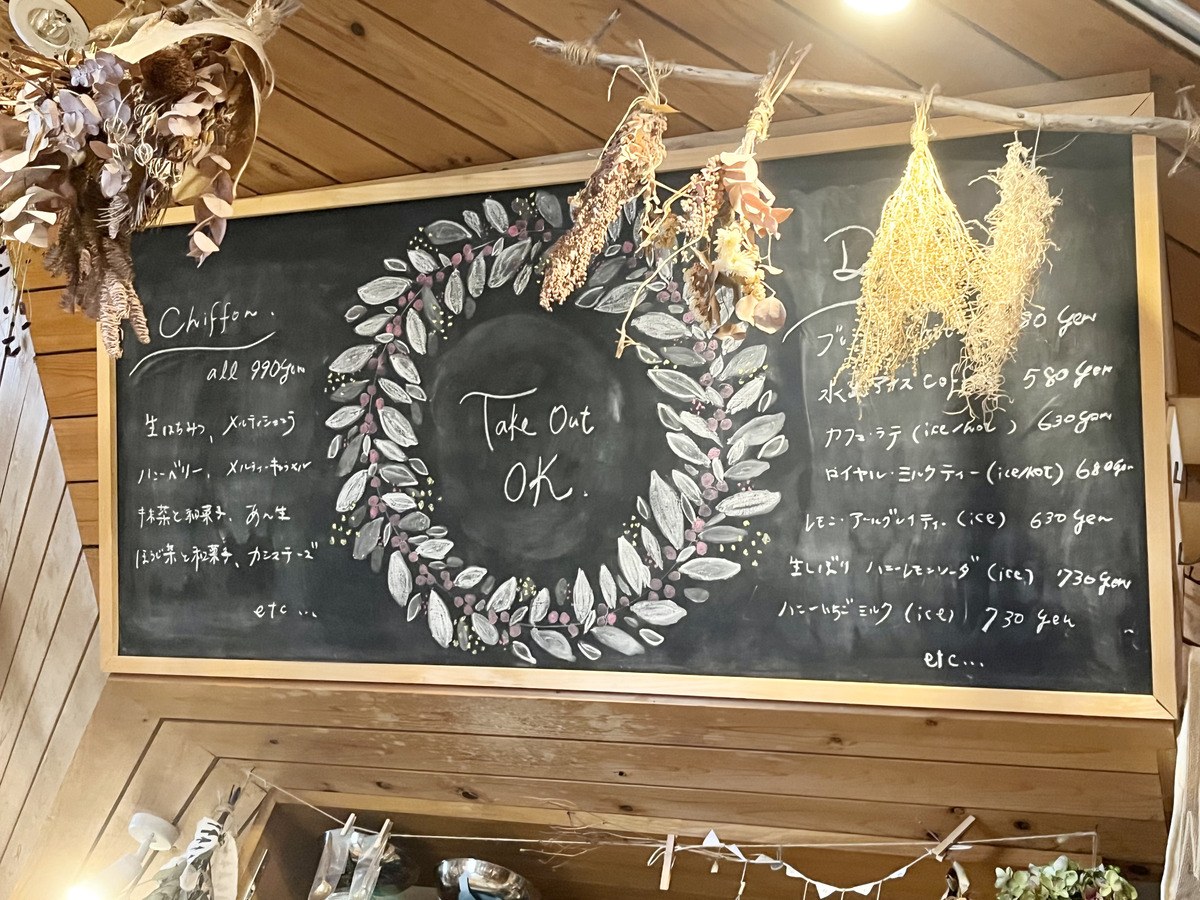 Chiffon.
all 990yen
生はちみつ、メルティショコラ
ハニーベリー、メルティーキャラメル
抹茶と和菓子、あん生
ほうじ茶と和菓子、カシスチーズ
etc...
Take Out
OK.
D
80 yen
アイス 580 yen
カフェ・ラテ (ice/hot) 630yen
ロイヤル・ミルクティー (ice/hot) 680yen
レモン・アールグレイティー (ice) 630 yen
生しぼり ハニーレモンソーダ (ice) 730yen
ハニーいちごミルク (ice) 730 yen
etc...